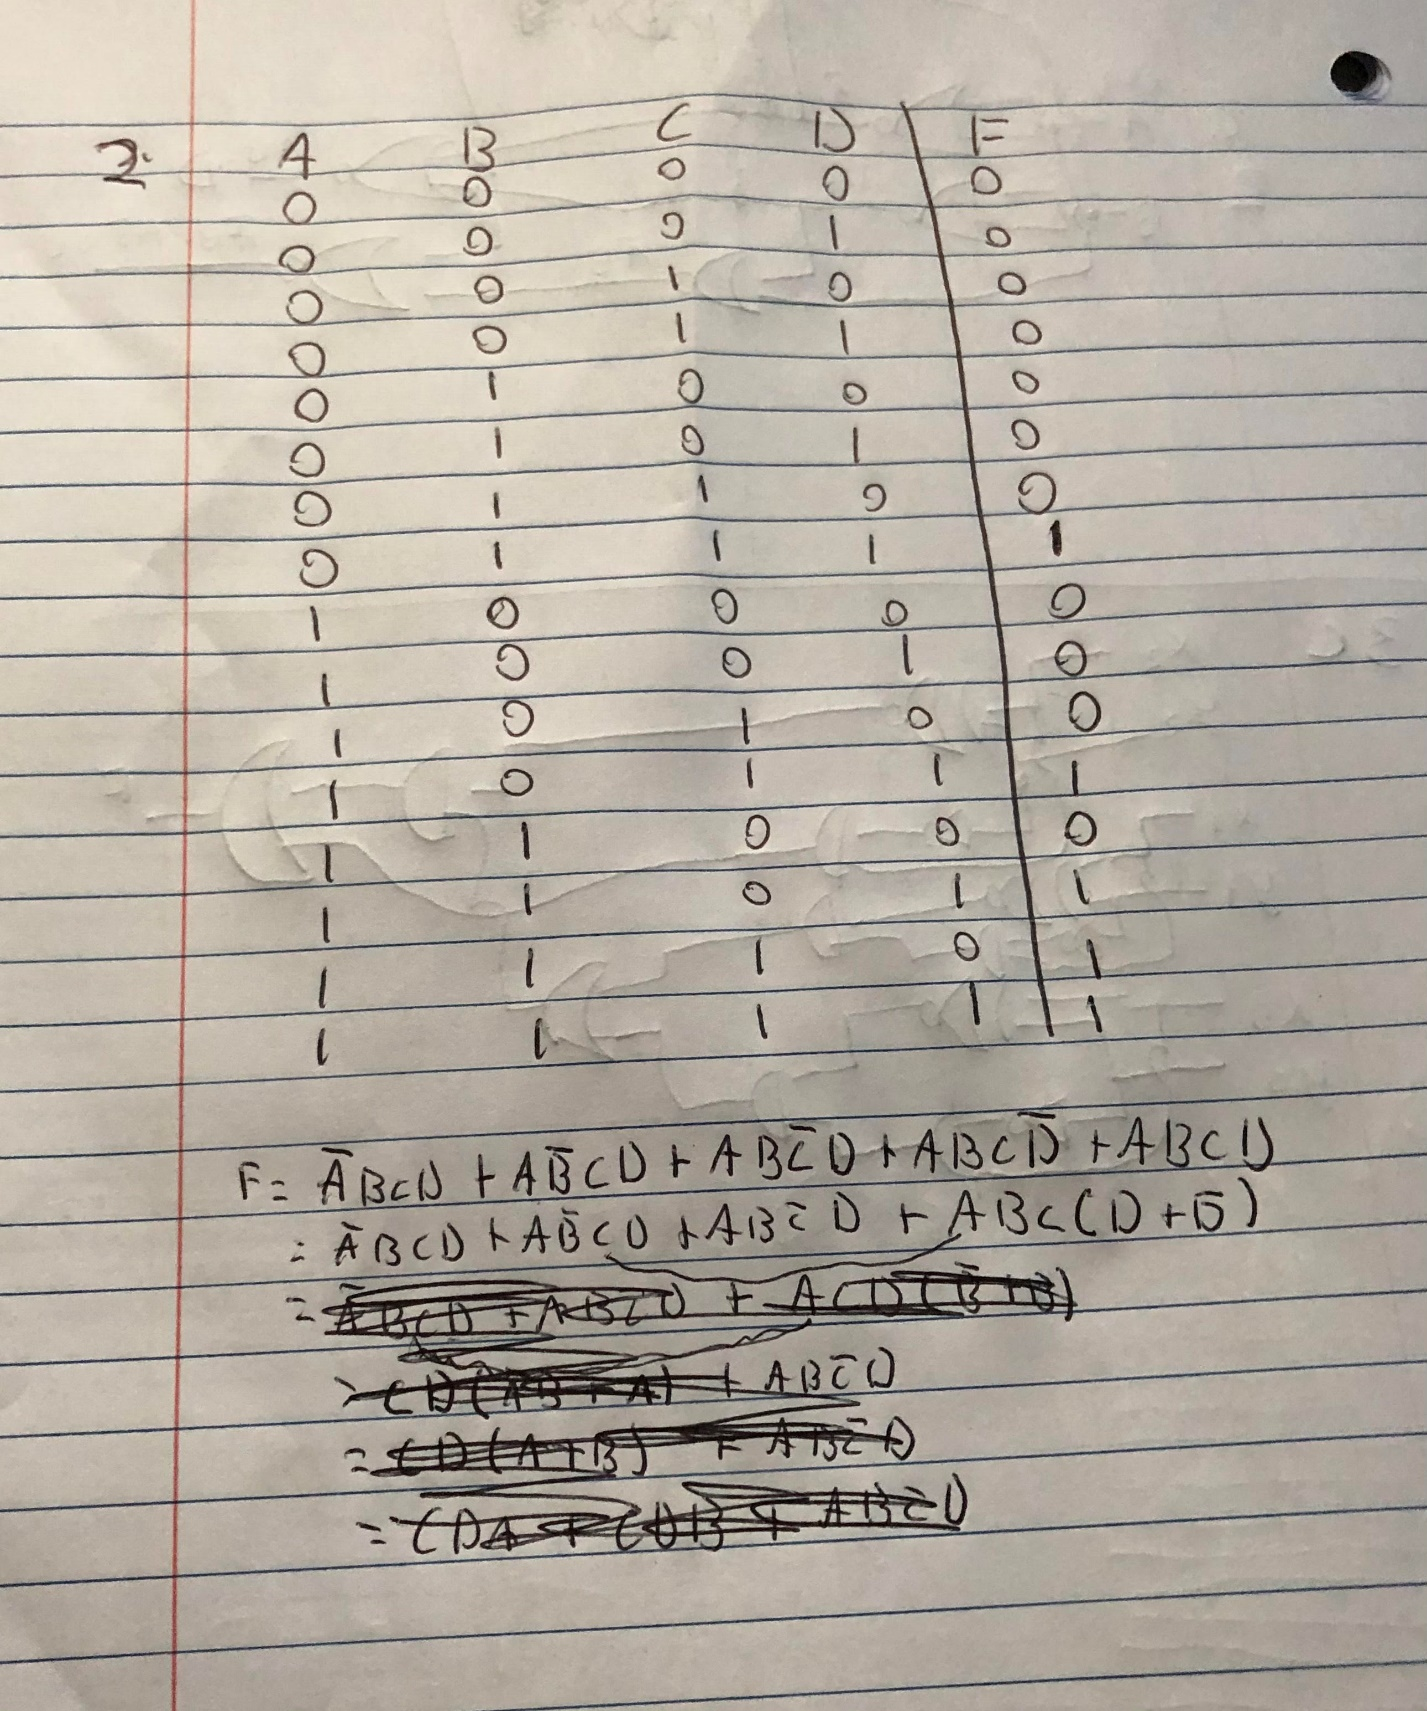 2. A B C D F
0 0 0 0 0
0 0 0 1 0
0 0 1 0 0
0 0 1 1 0
0 1 0 0 0
0 1 0 1 0
0 1 1 0 0
0 1 1 1 1
1 0 0 0 0
1 0 0 1 0
1 0 1 0 0
1 0 1 1 1
1 1 0 0 0
1 1 0 1 1
1 1 1 0 1
1 1 1 1 1
F = A̅BCD + AB̅CD + ABC̅D + ABCD̅ + ABCD
= A̅BCD + AB̅CD + ABC̅D + ABC(D + D̅)
= A̅BCD + ABC̅D + ACD(B̅+B)
= CD(A̅B + A) + ABC̅D
= CD(A+B) + ABC̅D
= CDA + CDB + ABC̅D